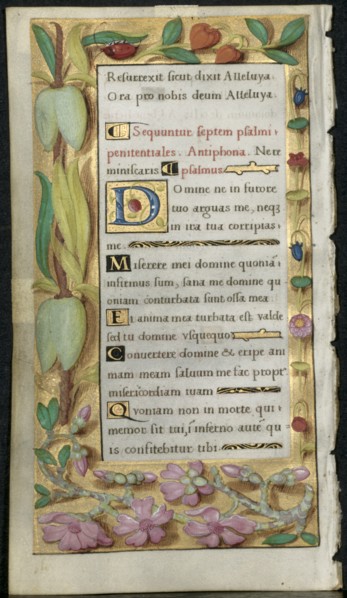 Resurrexit sicut dixit Alleluya.
Ora pro nobis deum Alleluya.
Sequuntur septem psalmi
penitentiales. Antiphona. Ne re
miniscaris psalmus
Domine ne in furore
tuo arguas me, neqz
in ira tua corripias
me.
Miserere mei domine quoniā
infirmus sum, sana me domine qu
oniam conturbata sunt ossa mea.
Et anima mea turbata est valde
sed tu domine vsquequo
Conuertere domine & eripe ani
mam meam saluum me fac propt
misericordiam tuam
Quoniam non in morte qui
memor sit tui, ī inferno autē qu
is confitebitur tibi